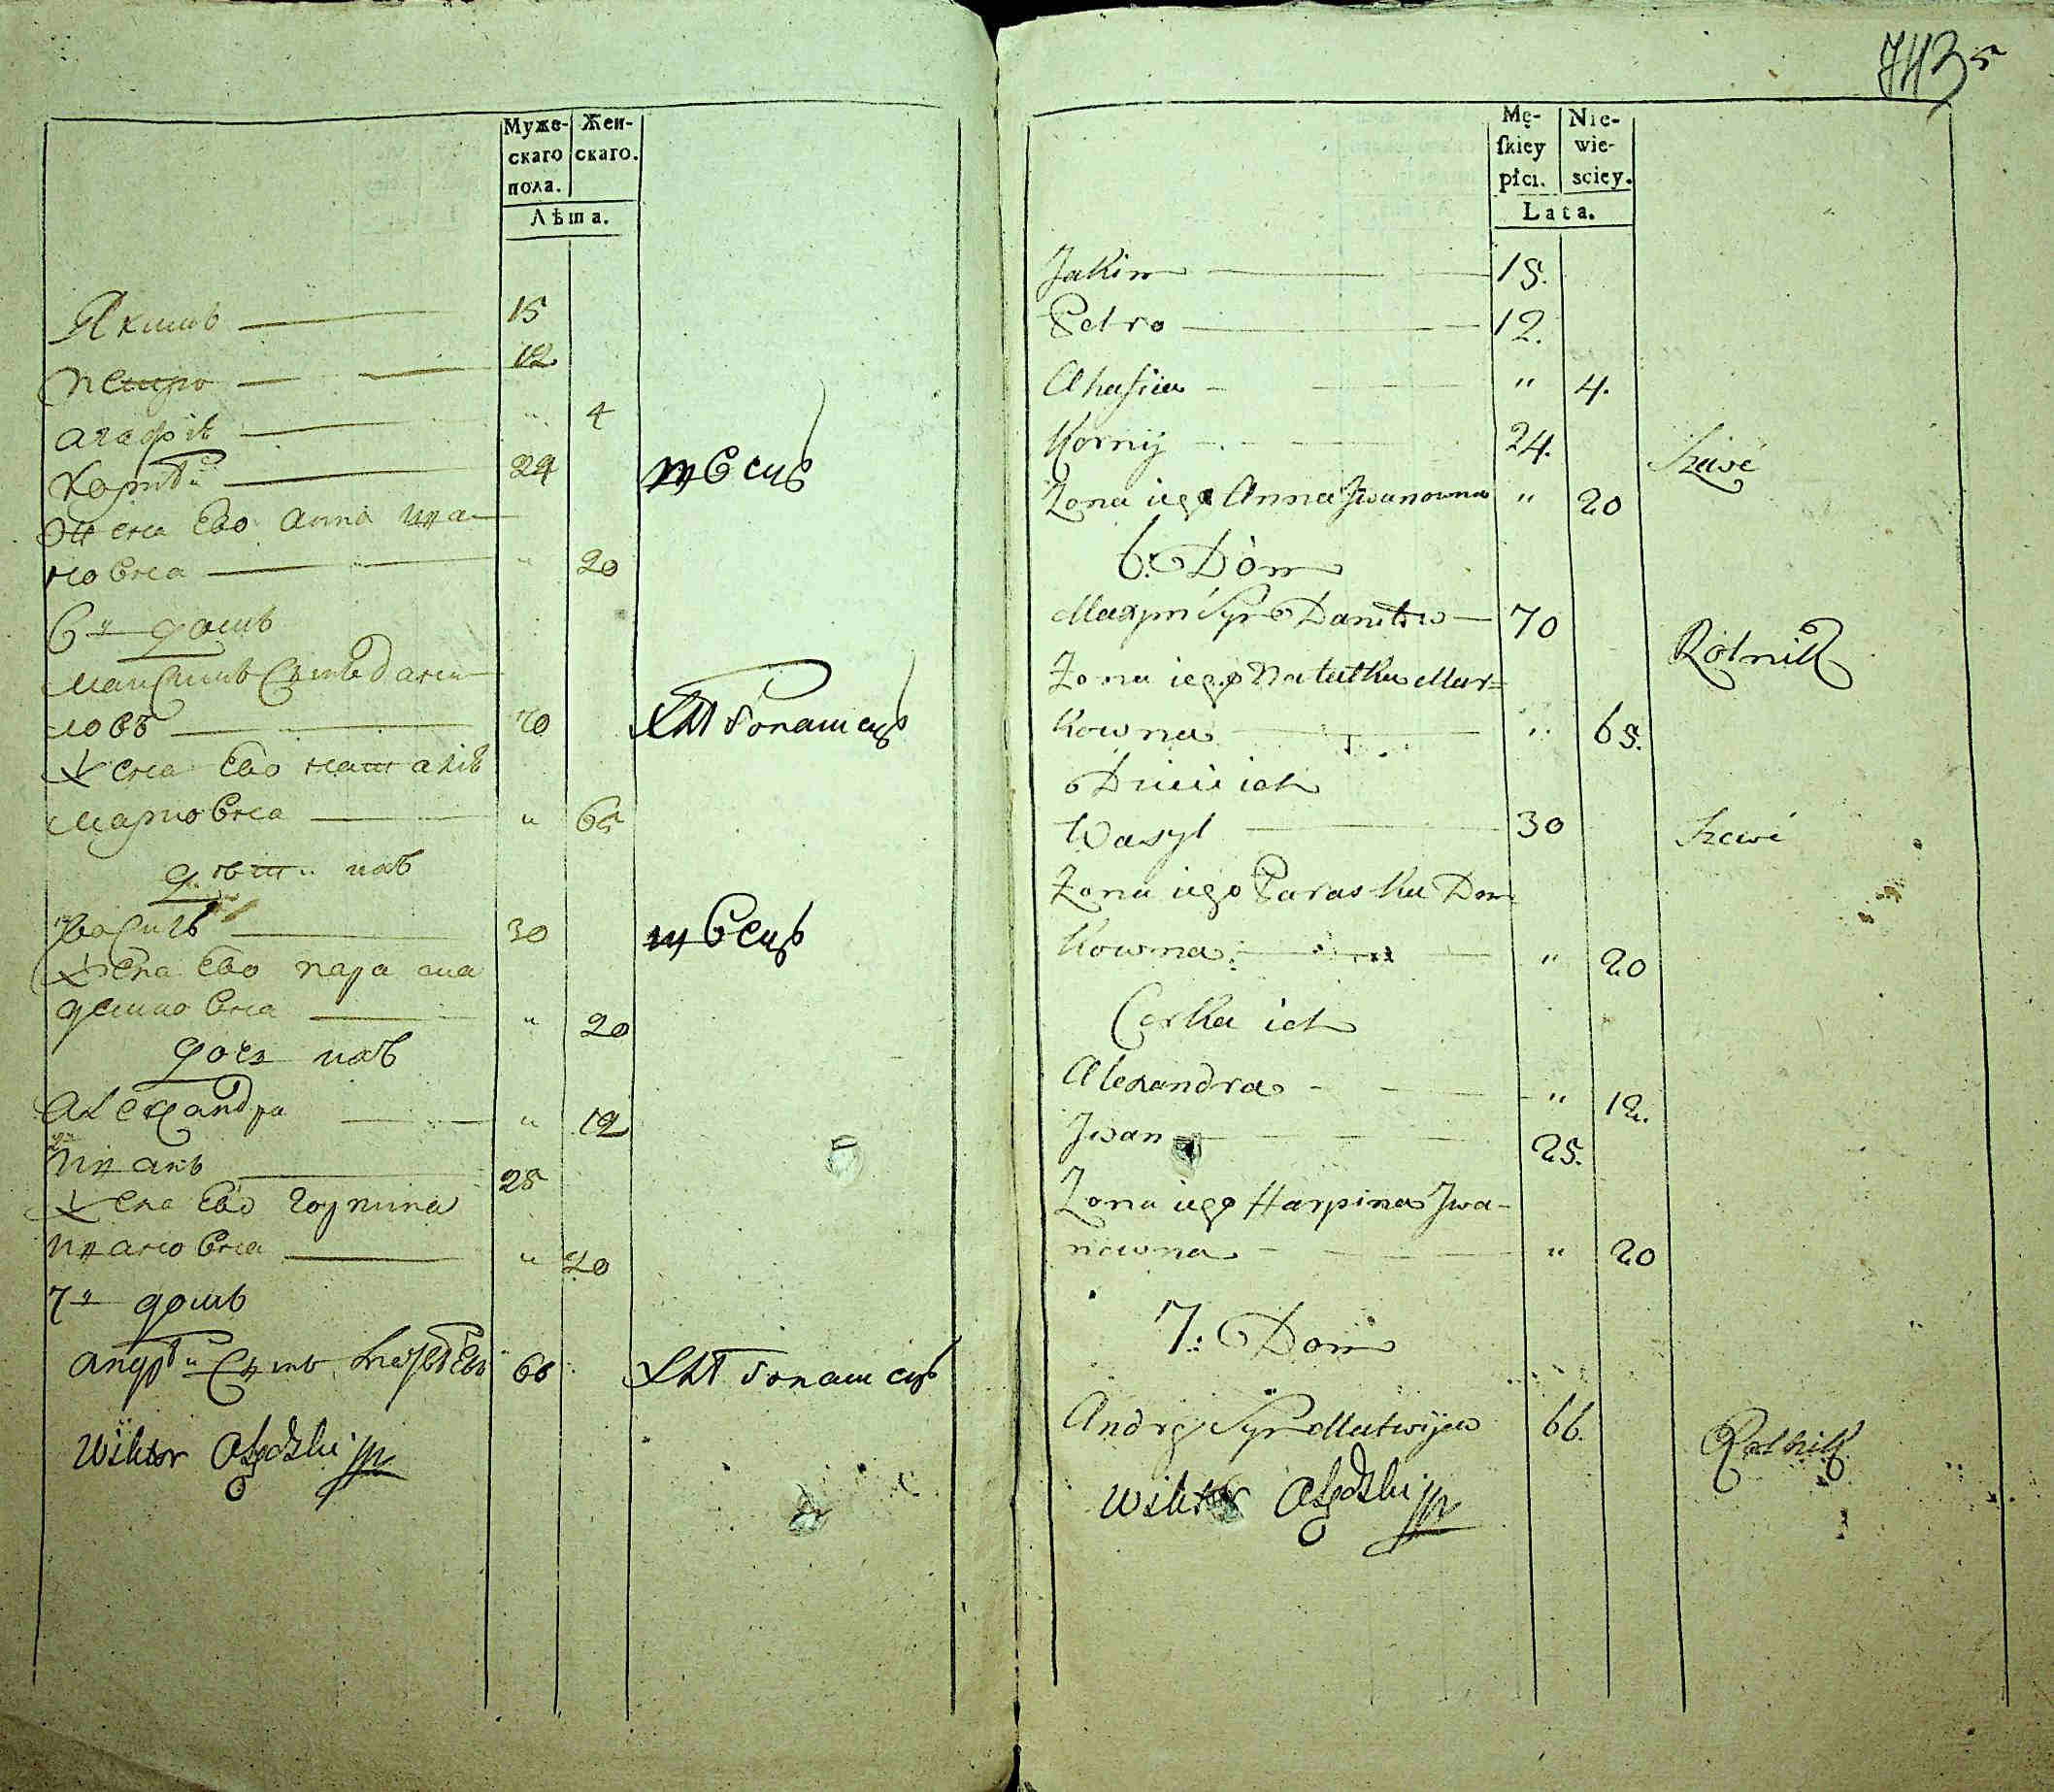 Муже-
скаго
пола.
Жен-
скаго.
Лѣта.
Якимъ 15
Петро 12
Агафія " 4
Корнѣй 24 швецъ
Жена Ево Анна Ива-
новна " 20
6й домъ
Максимъ Сынъ Дани-
ловъ 70 Хлѣбопашецъ
Жена Ево Наталія
Марковна " 65
Дѣти ихъ
Василь 30 швецъ
Жена Ево Параска
Демковна " 20
Дочь ихъ
Александра " 12
Иванъ 25
Жена Ево Горпина
Ивановна " 20
7й домъ
Андрѣй Сынъ 66 Хлѣбопашецъ
Wiktor
743
5
Mę-
ſkiey
płci.
Nie-
wie-
sciey.
Lata.
Jakim 15.
Petro 12.
Ahafia " 4.
Korniy 24. Szewc
Zona iego Anna Jwanowna " 20
6: Dom
Maxym Syn Daniłow 70 Rolnik
Zona iego Natalka Mar=
kowna " 65.
Dzieci ich
Wasyl 30 Szewc
Zona iego Paraska Dem
kowna " 20
Corka ich
Alexandra " 12.
Jwan 25.
Zona iego Harpina Jwa-
nowna " 20
7: Dom
Andrey Syn Matwijew 66. Rolnik
Wiktor